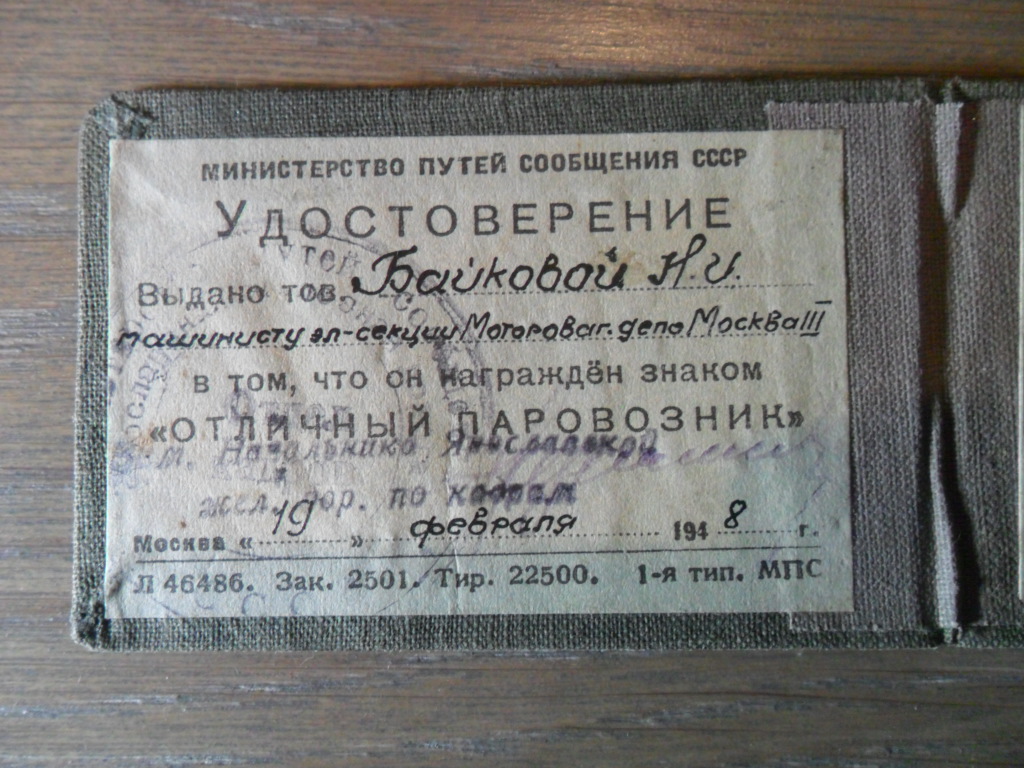 МИНИСТЕРСТВО ПУТЕЙ СООБЩЕНИЯ СССР
УДОСТОВЕРЕНИЕ
Выдано тов. Байковой Н.И.
машинисту эл-секции Мотороваг. депо Москва III
в том, что он награждён знаком
«ОТЛИЧНЫЙ ПАРОВОЗНИК»
Начальника Ярославской
жел. дор. по кадрам
Москва « 19 » февраля 1948 г.
Л 46486. Зак. 2501. Тир. 22500. 1-я тип. МПС